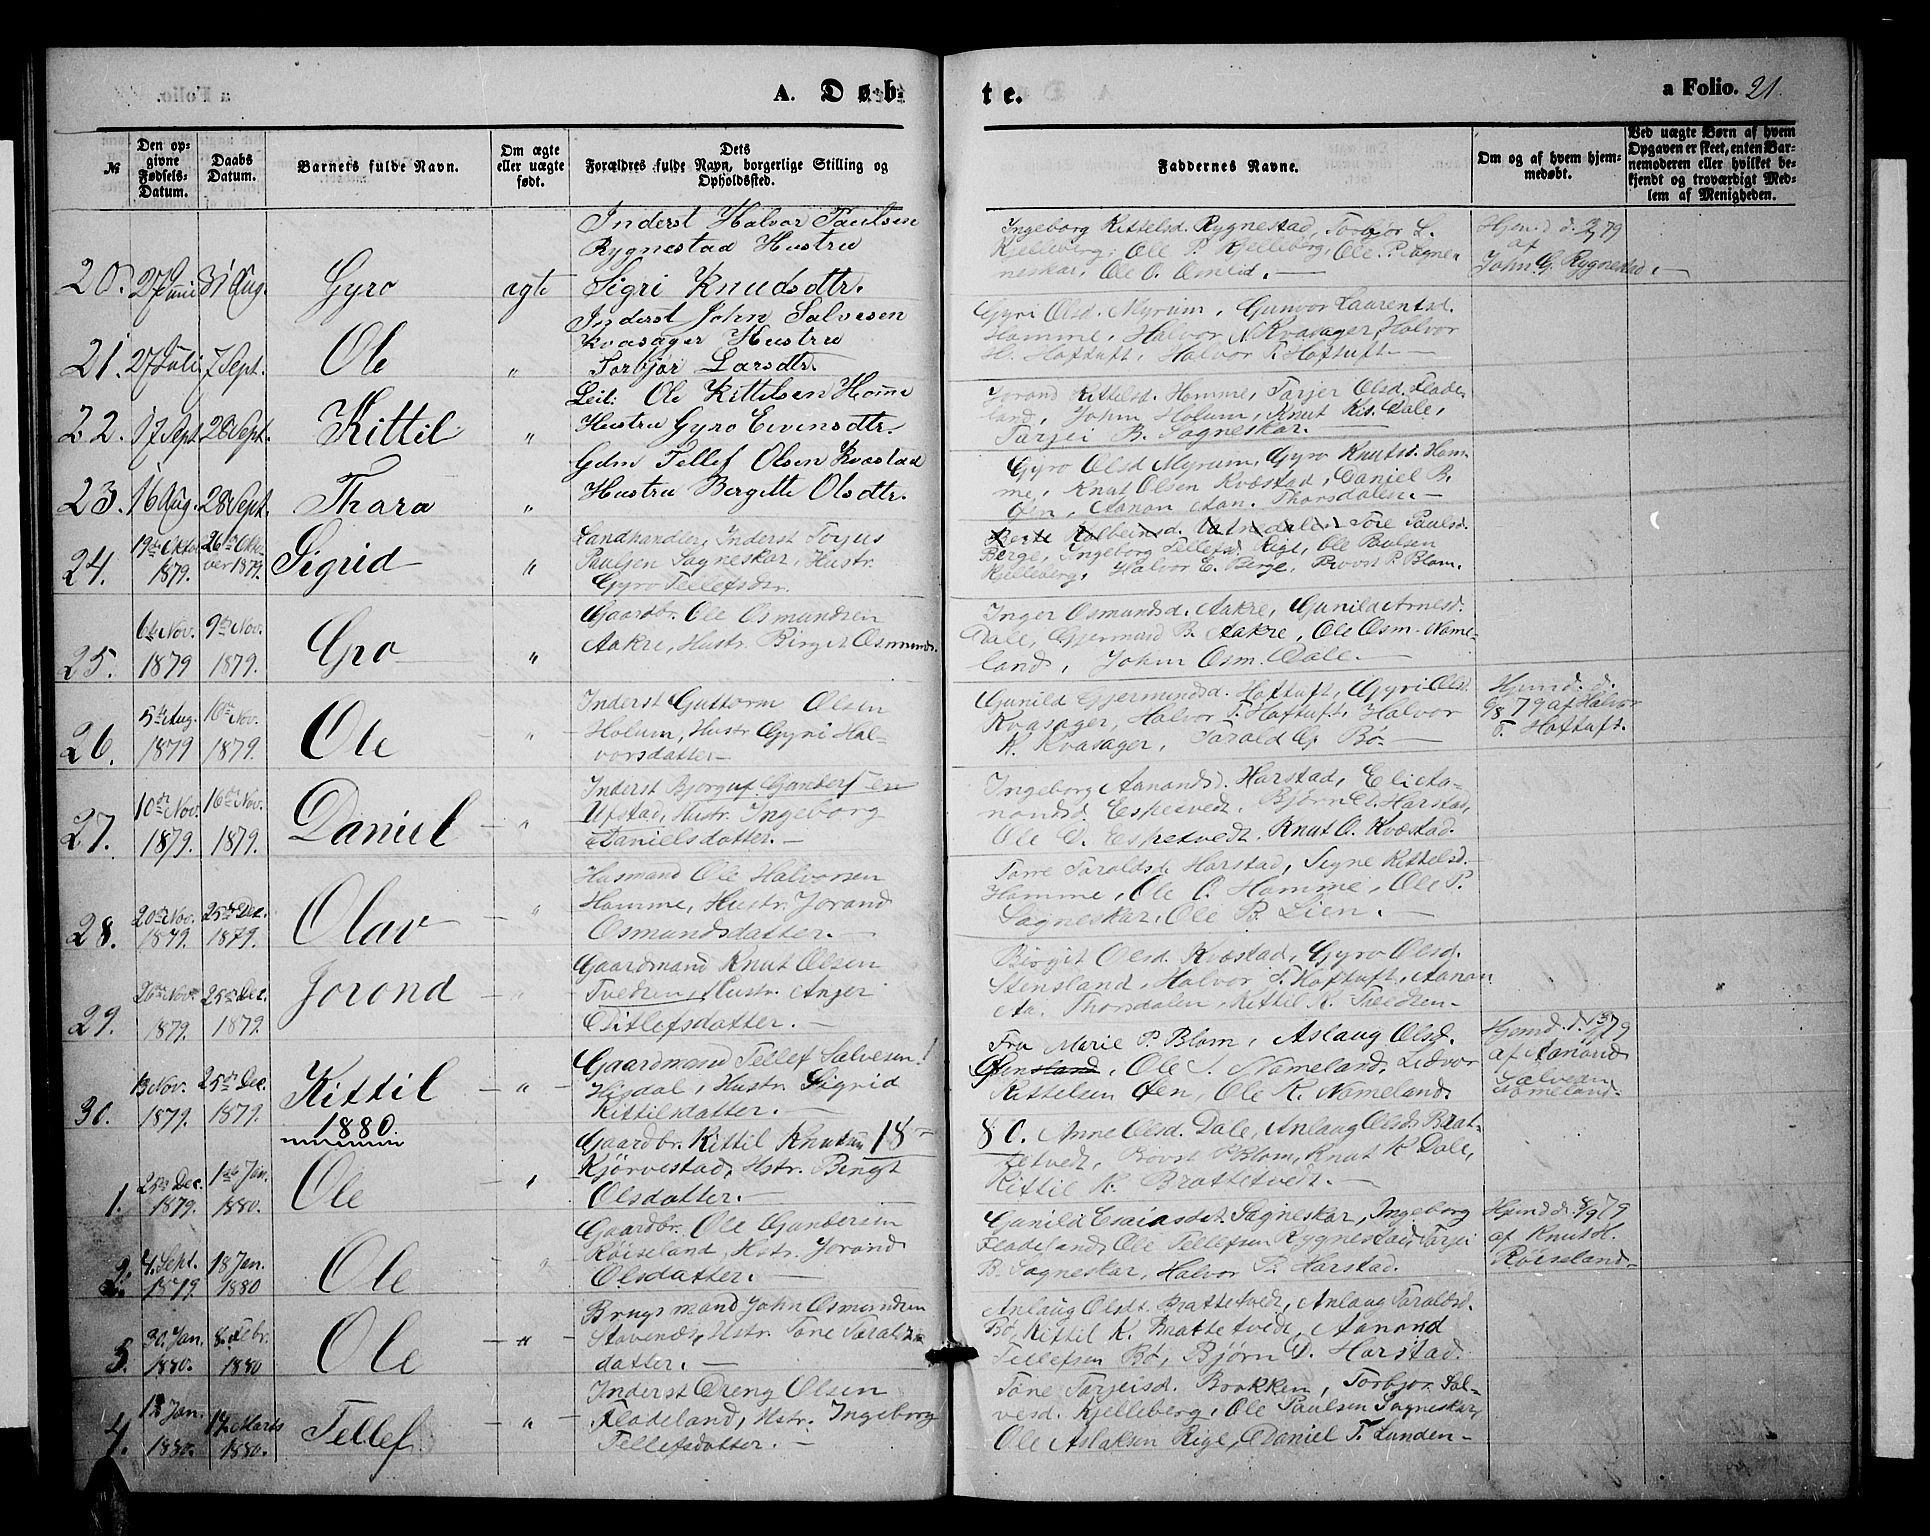 A. Døb-
te.
a Folio. 21.
№
Den op-
givne
Fødsels-
Datum.
Daabs
Datum.
Barnets fulde Navn.
Om ægte
eller uægte
født.
Dets
Forældres fulde Navn, borgerlige Stilling og
Opholdssted.
Faddernes Navne.
Om og af hvem hjem-
medøbt.
Ved uægte Børn af hvem
Opgaven er skeet, enten Bar-
nemoderen eller hvilket be-
kjendt og troværdigt Med-
lem af Menigheden.
20. 27 Juni 31 Aug. Gyro ægte
Inderst Halvor Paulsen
Rygnestad Hustru
Sigri Knudsdtr.
Ingeborg Kittelsd. Rygnestad, Torbjør L.
Kjelleberg, Ole P. Kjelleberg, Ole P. Sagne-
neskar, Ole O.
Hjemd. d. 79
af
John G. Rygnestad.
21. 27 Juli. 7 Sept. Ole "
Inderst John Salvesen
Kvasager Hustru
Torbjør Larsdtr.
Gyri Olsd. Myrum, Gunvor Laurentsd.
Homme, Halvor Kvasager, Halvor
H. Hoftuft, Halvor T. Hoftuft.
22. 17 Sept. 28 Sept. Kittil "
Leil: Ole Kittilsen Home
Hustru Gyro Eivensdtr.
Jorand Kittelsd. Homme, Tarjer Olsd. Flade-
land, John Holum, Knut Kis. Dale,
Tarjei B. Sagneskar.
23. 16 Aug. 28 Sept. Thara "
Gdm Tellef Olsen Kvæstad
Hustru Bergitte Olsdtr.
Gyro Olsd Myrum, Gyro Knutsd. Hom-
me, Knut Olsen Kvæstad, Daniel B.
Øen, Aanon Aan. Thorsdalen.
24. 19de Oktbr 1879. 26de Okto-
ver 1879. Sigrid "
Landhandler, Inderst Torjus
Paulsen Sagneskar, Hustr.
Gyro Tellefsdtr.
Tore Paulsd.
Berge, Ingeborg Tellefsd. Rige, Ole Paulsen
Kjelleberg, Halvor E. Berge, Provst P. Blom.
25. 6te Nov. 1879 9de Nov. 1879. Gro "
Gaardbr. Ole Osmundsen
Aakre, Hustr. Birgit Osmunds.
Inger Osmundsd. Aakre, Gunild Arnesd.
Dale, Gjermund B. Aakre, Ole Osm. Nome-
land, John Osm. Dale.
26. 5te Aug. 1879 16de Nov. 1879. Ole "
Inderst Guttorm Olsen
Holum, Hustr Gyri Hal-
vorsdatter
Gunild Gjermundsd. Hoftuft, Gyri Olsd.
Kvasager, Halvor T. Hoftuft, Halvor
K. Kvasager, Tarald G. Bø.
Hjemd. d.
8 79 af Halvor
T. Hoftuft.
27. 10de Nov. 1879. 16de Nov. 1879. Daniel "
Inderst Bjorguf Gundersen
Ufstad, Hustr. Ingeborg
Danielsdatter.
Ingeborg Aanonsd. Harstad, Eli Aa-
nonsd. Espetvedt, Bjørn D. Harstad,
Ole D. Espetvedt. Knut O. Kvæstad.
28. 20de Nov. 1879. 25de Dec. 1879. Olav "
Husmand Ole Halvorsen
Homme, Hustr. Jorand
Osmundsdatter.
Tone Taraldsd. Harstad, Signe Kittelsd.
Homme, Ole O. Homme, Ole P.
Sagneskar, Ole B. Lien.
29. 26de Nov. 1879. 25de Dec. 1879. Jorond "
Gaardmand Knut Olsen
Tveiten, Hustr. Anger
Ditlefsdatter.
Birgit Olsd. Kvæstad, Gyro Olsd.
Stensland, Halvor T. Hoftuft, Aanon
Aa. Thorsdalen, Kittil K. Tveitsen
30. 13 Nov. 1879. 25de Dec. 1879. Kittil "
Gaardmand Tellef Salvesen
Hisdal, Hustr. Sigrid
Kittilsdatter.
Fru Marie P. Blom, Aslaug Olsd.
Ole S. Nomeland, Lidvor
Kittelsen Øen, Ole K. Nomeland.
Hjemd. d. 79
af Aanond
Salvesen
Nomeland.
1880.
18
80.
1. 25de Dec. 1879. 1ste Jan. 1880. Ole "
Gaardbr. Kittil Knutsen
Kjørvestad, Hstr. Bingt
Olsdatter.
Anne Olsd. Dale, Anlaug Olsd. Brat-
tetvedt, Provst P. Blom, Knut K Dale,
Kittil K. Brattetvedt.
2. 4. Sept. 1879 18 Jan. 1880 Ole "
Gaardbr. Ole Gundersen
Røiseland, Hstr. Jorand
Olsdatter.
Gunild Esaiasdt. Sagneskar, Ingeborg
Fladeland, Ole Tellefsen Rygnestad, Tarjei
B. Sagneskar, Halvor P. Harstad.
Hjemd d. 8/9 79
af Knut H.
Røiseland.
3. 30. Jan. 1880. 8. Febr. 1880 Ole "
Brugsmand John Osmundsen
Stavenes, Hstr. Tone Taralds-
datter.
Anlaug Olsdt. Brattetvedt, Anlaug Taraldsd.
Bø, Kittil K. Brattetvedt, Aanond
Tellefsen Bø, Bjørn D. Harstad.
4. 12 Jan. 1880. 14 Marts 1880. Tellef "
Inderst Dreng Olsen
Fladeland, Hstr. Ingeborg
Tellefsdatter.
Tone Tarjeisd. Brokken, Torbjor Sal-
vesd. Kjelleberg, Ole Paulsen Sagneskar,
Ole Aslaksen Rige, Daniel T. Lunden